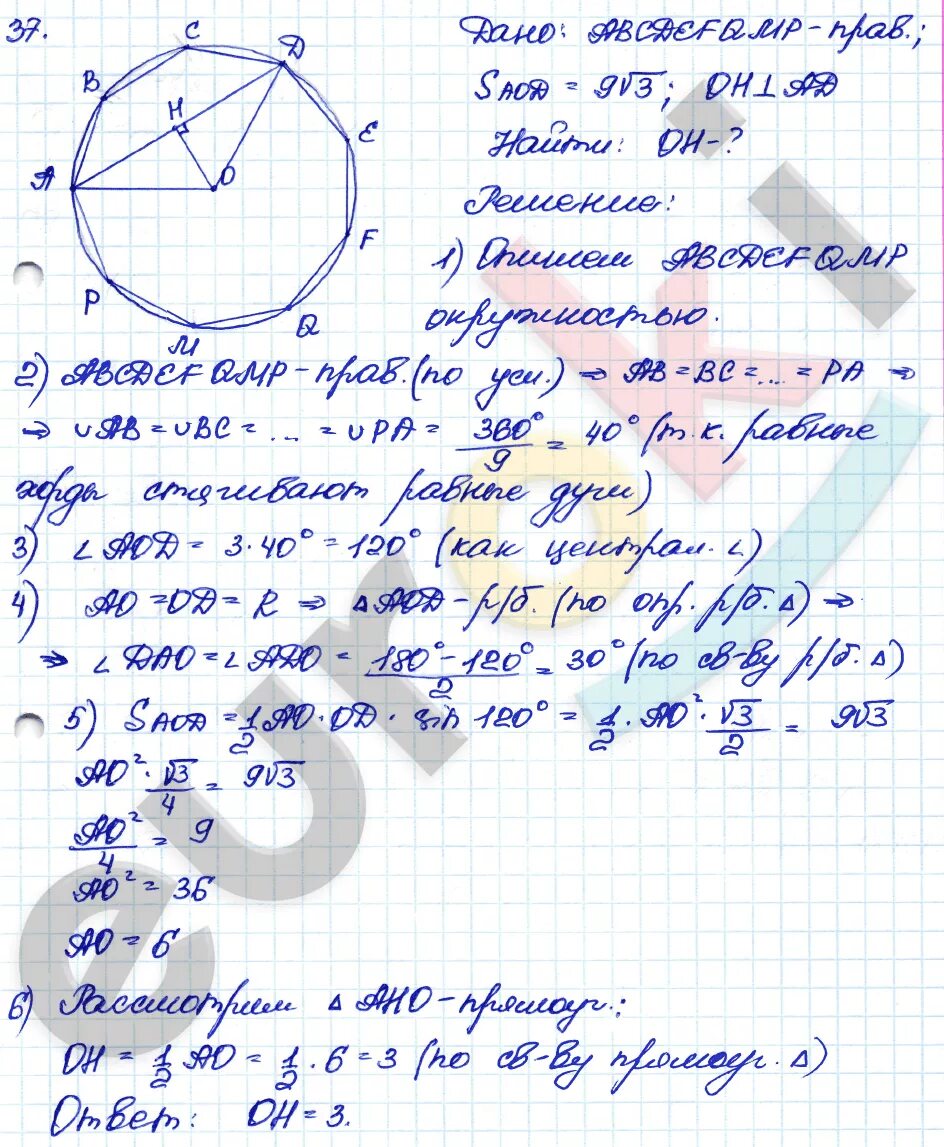 37.
Дано: ABCDEFQMP - прав.;
S AOD = 9√3; OH⊥AD
Найти: OH-?
Решение:
1) Опишем ABCDEFQMP
окружностью.
A
B
C
D
E
F
Q
M
P
H
O
2) ABCDEFQMP - прав. (по усл.) ⇒ AB = BC = ... = PA ⇒
⇒ ∪AB = ∪BC = ... = ∪PA = 360°/9 = 40° (т.к. равные
хорды стягивают равные дуги)
3) ∠AOD = 3·40° = 120° (как централ. ∠)
4) AO = OD = R ⇒ △AOD - р/б. (по опр. р/б. △) ⇒
⇒ ∠DAO = ∠ADO = (180° - 120°)/2 = 30° (по св-ву р/б. △)
5) S AOD = 1/2 AO · OD · sin 120° = 1/2 · AO² · √3/2 = 9√3
AO² · √3/4 = 9√3
AO²/4 = 9
AO² = 36
AO = 6
6) Рассмотрим △AHO - прямоуг.:
OH = 1/2 AO = 1/2 · 6 = 3 (по св-ву прямоуг. △)
Ответ: OH = 3.
euroki